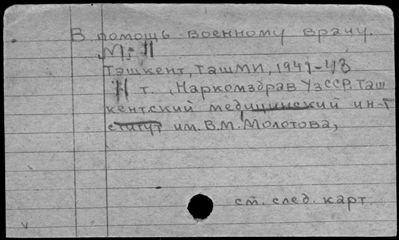 В помощь военному врачу.
Ташкент, ТашМИ, 1941-43
т. , Наркомздрав УзССР. Таш
кентский медицинский ин-т
ститут им. В. М. Молотова,
ст. след. карт.